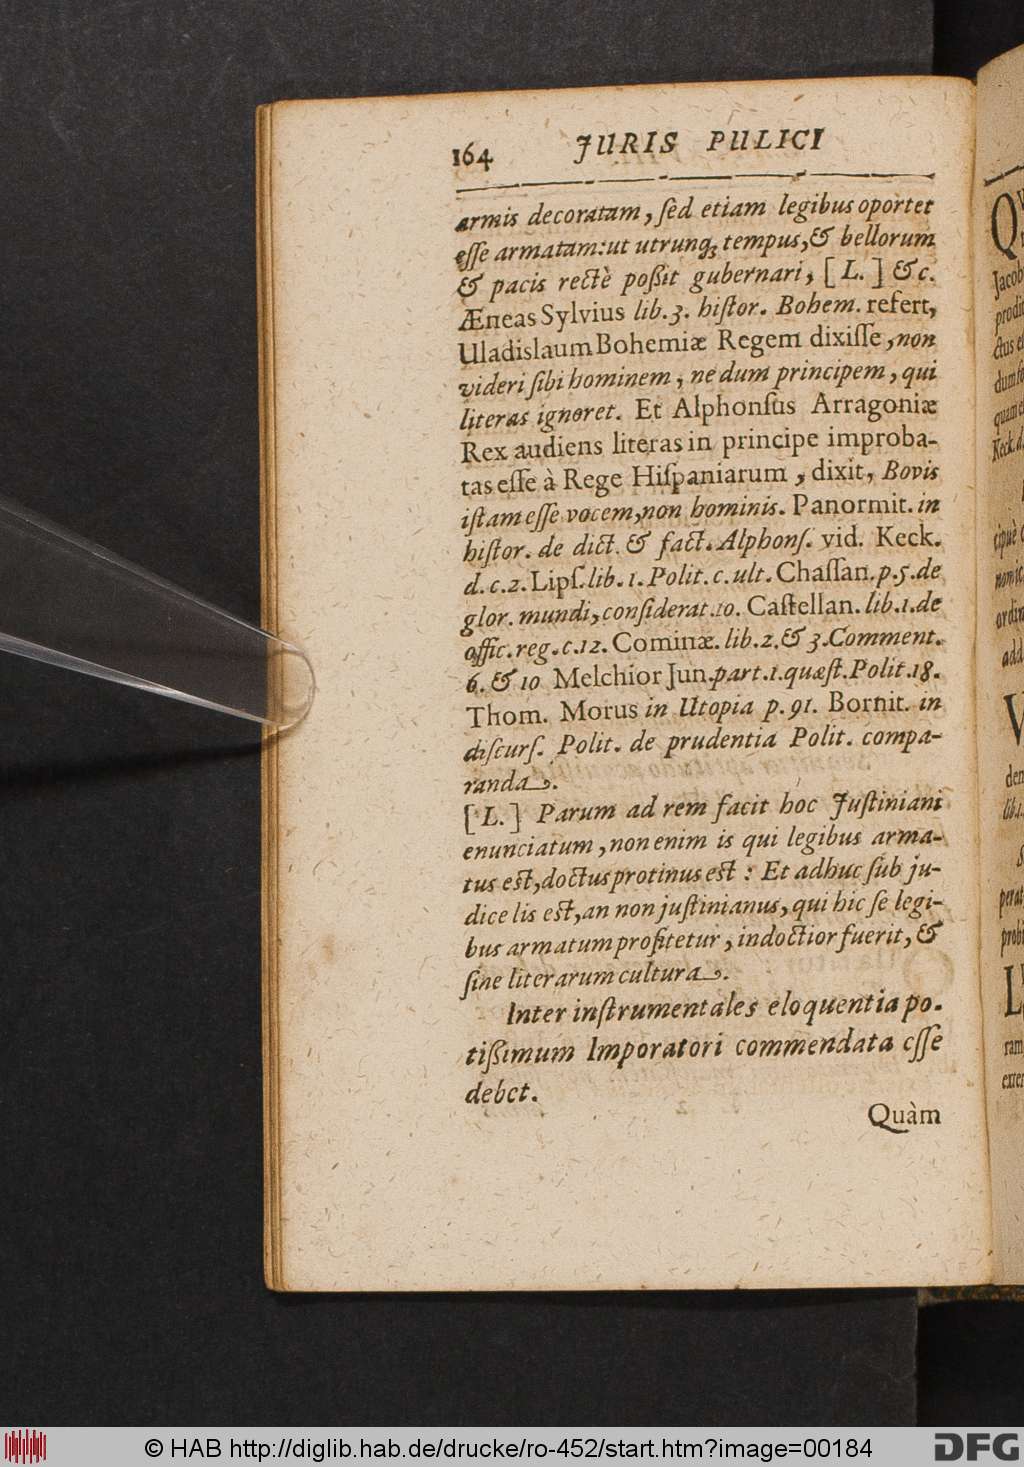 164 JURIS PULICI
armis decoratam, ſed etiam legibus oportet
eſſe armatam: ut utrunq; tempus, & bellorum
& pacis rectè poßit gubernari, [ L. ] & c.
Æneas Sylvius lib. 3. hiſtor. Bohem. refert,
Uladislaum Bohemiæ Regem dixiſſe, non
videri ſibi hominem, ne dum principem, qui
literas ignoret. Et Alphonſus Arragoniæ
Rex audiens literas in principe improba-
tas eſſe à Rege Hiſpaniarum, dixit, Bovis
iſtam eſſe vocem, non hominis. Panormit. in
hiſtor. de dict. & fact. Alphonſ. vid. Keck.
d. c. 2. Lipſ. lib. 1. Polit. c. ult. Chaſſan. p. 5. de
glor. mundi, conſiderat. 10. Caſtellan. lib. 1. de
offic. reg. c. 12. Cominæ. lib. 2. & 3. Comment.
6. & 10 Melchior Jun. part. 1. quæſt. Polit. 18.
Thom. Morus in Utopia p. 91. Bornit. in
diſcurſ. Polit. de prudentia Polit. compa-
randa.
[ L. ] Parum ad rem facit hoc Juſtiniani
enunciatum, non enim is qui legibus arma-
tus eſt, doctus protinus eſt: Et adhuc ſub ju-
dice lis eſt, an non juſtinianus, qui hic ſe legi-
bus armatum profitetur, indoctior fuerit, &
ſine literarum cultura.
Inter inſtrumentales eloquentia po-
tißimum Imporatori commendata eſſe
debet.
Quàm
Jacob
prodit
© HAB http://diglib.hab.de/drucke/ro-452/start.htm?image=00184
DFG